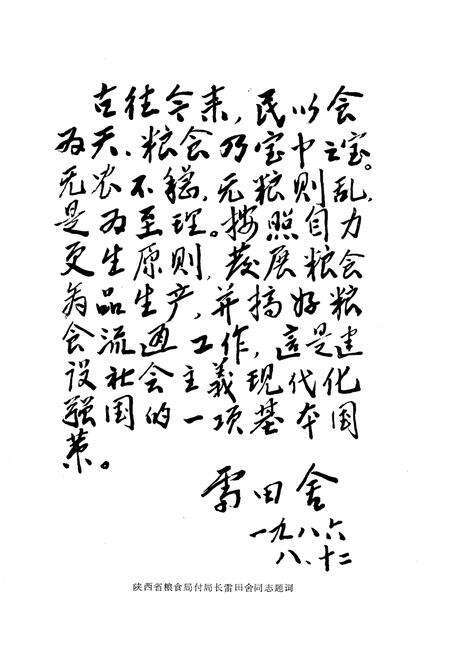 古往今来，民以食
为天、粮食乃宝中之宝。
无农不稳，无粮则乱，
是为至理。按照自力
更生原则，发展粮食
商品生产，并搞好粮
食流通工作，這是建
设社会主義现代化
强国的一项基本国
策。
雷田舍
一九八六
八、十二
陕西省粮食局付局长雷田舍同志题词